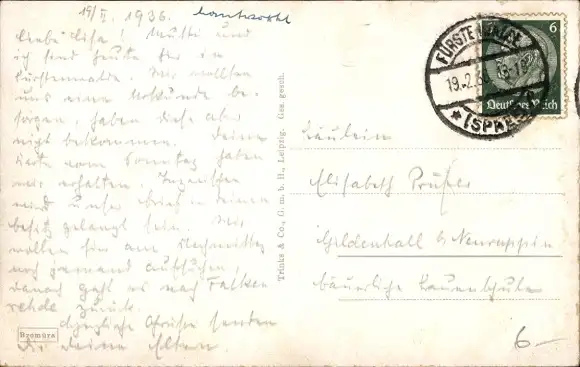 19/II. 1936.
Liebe Lisa! Mutti und
ich sind heute hier in
Fürstenwalde. Wir wollten
uns eine Urkunde be-
sorgen, haben diese aber
nicht bekommen. Deine
Karte vom Sonntag haben
wir erhalten. Inzwischen
wird unser Brief in deinen
Besitz gelangt sein. Wir
wollen hier am Nachmittag
noch jemand aufsuchen,
danach geht es nach Falken
rehde zurück.
Herzliche Grüße senden
dir deine Eltern.
Bromüra
Trinks & Co., G. m. b. H., Leipzig. Ges. gesch.
FÜRSTENWALDE
19.2.36
*(SPREE)
6
Deutsches Reich
Fräulein
Elisabeth Prüfer
Gildenhall b/ Neuruppin
Bäuerliche Frauenschule
6.–